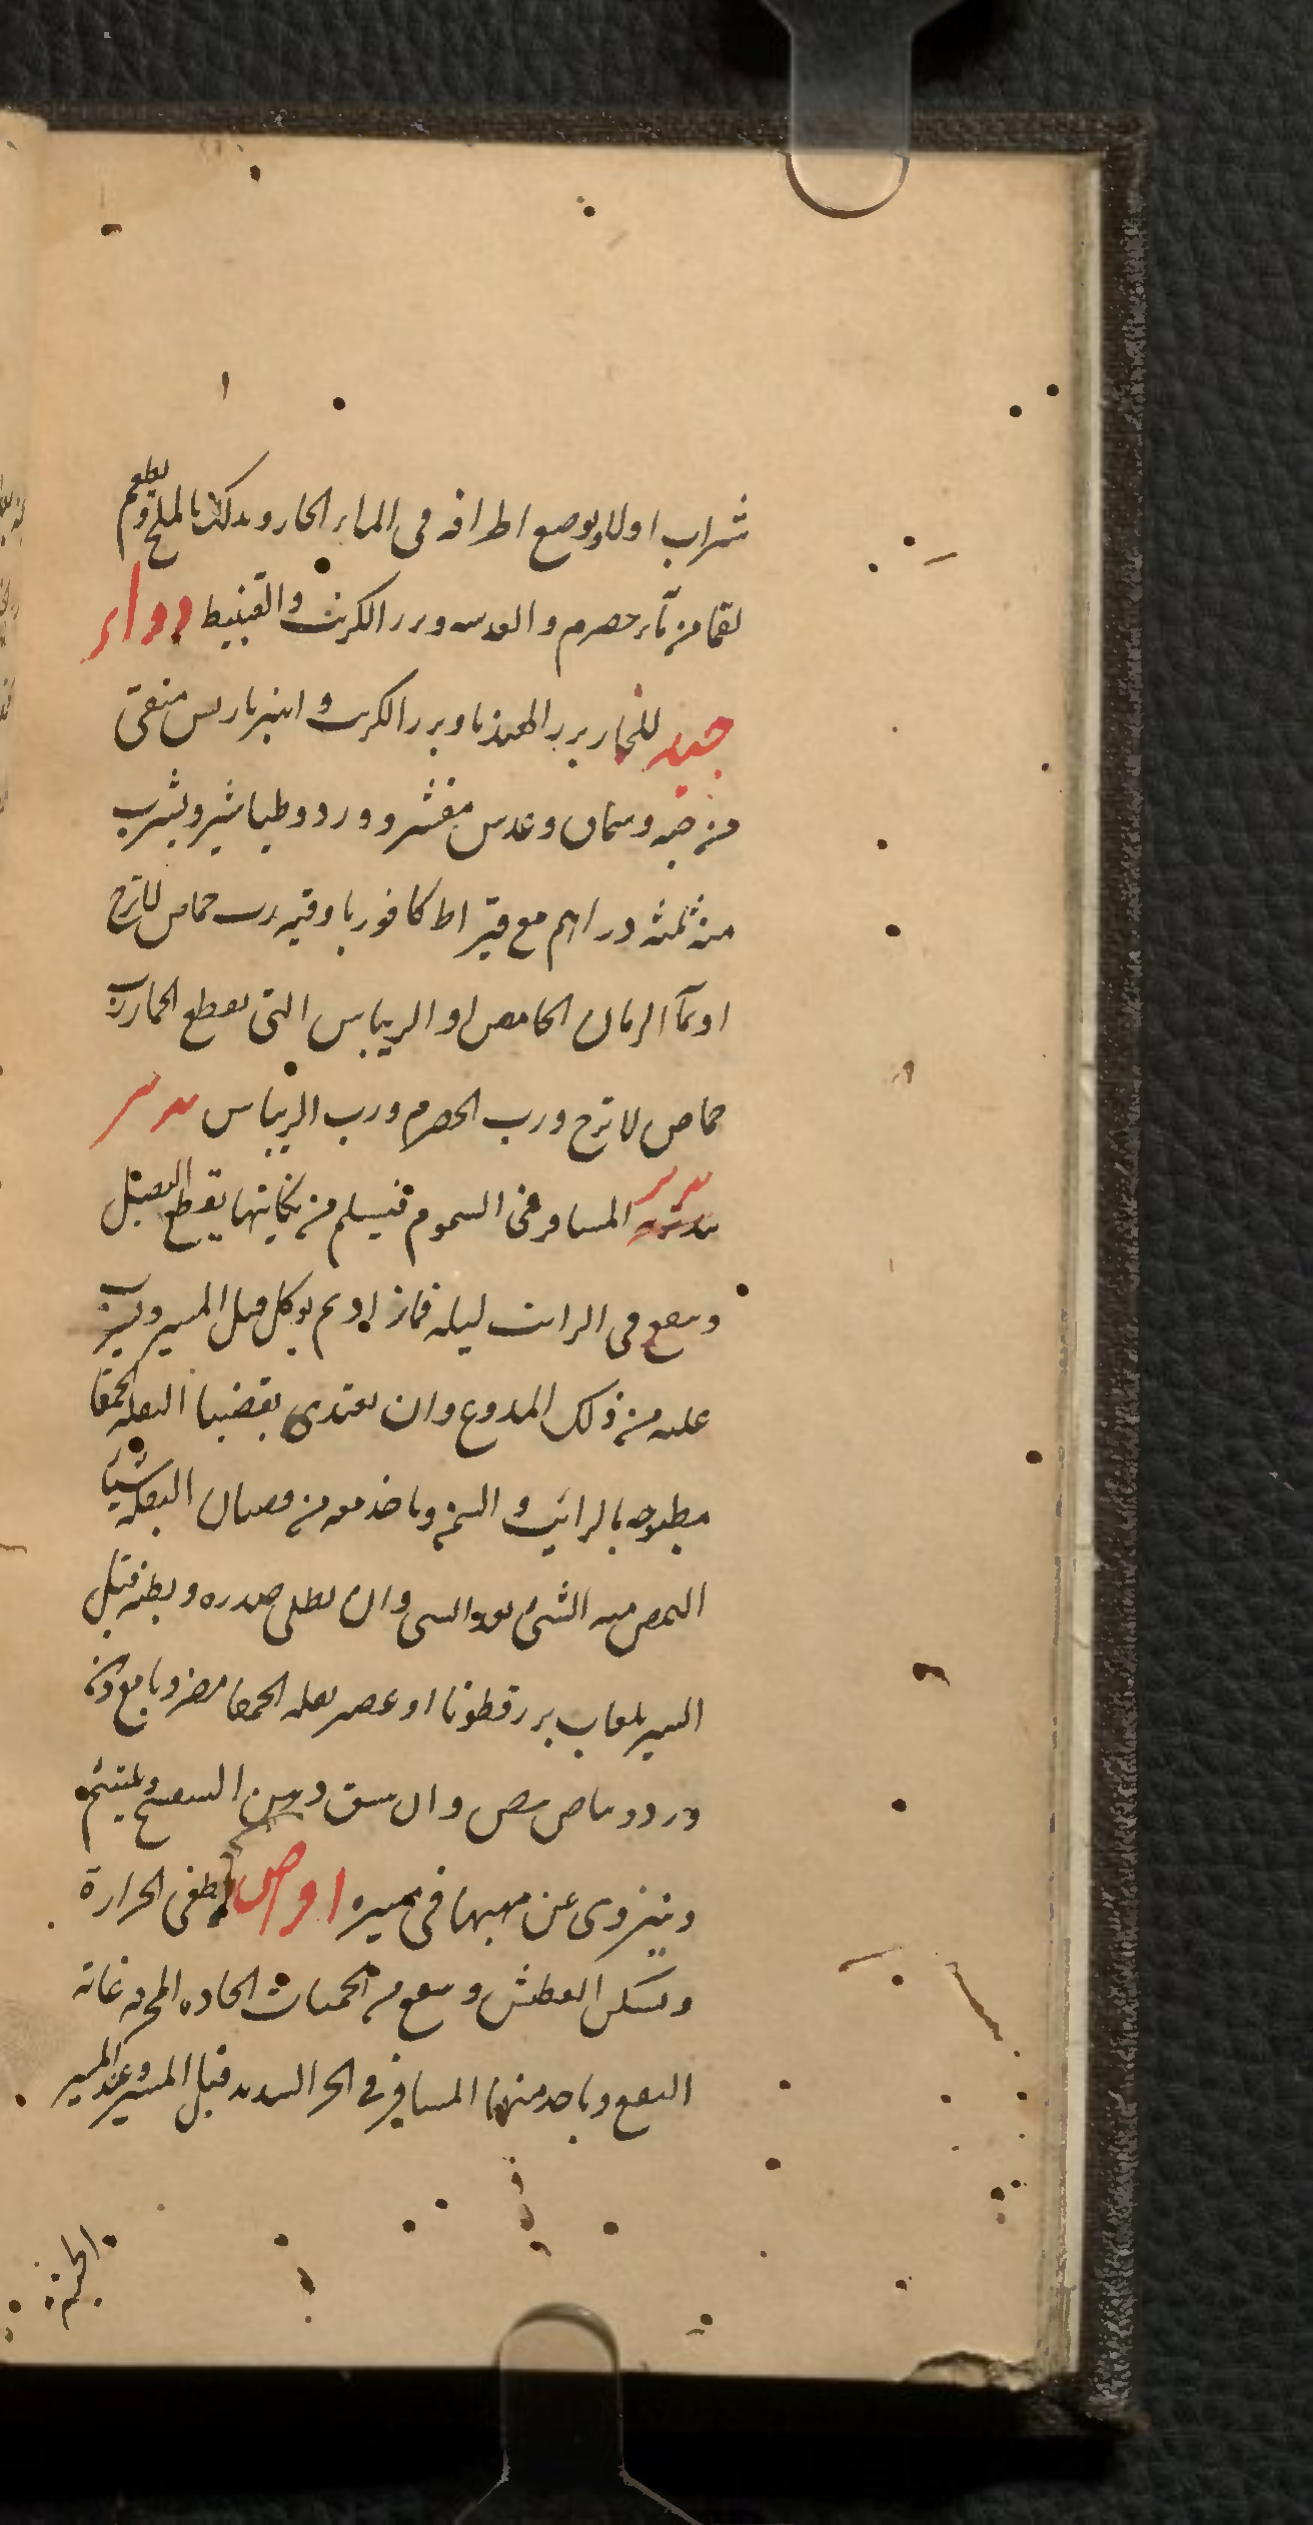 شراب اولا ويوضع اطرافه فى الماء الحار ويدلك بالملح ويطعم
لقما من ماء حصرم والعدس وبزر الكرنب والقنبيط دواء
جيد للخمار بزر الهندبا وبزر الكرنب وانبرباريس منقى
من حبه وسماق وعدس مقشر وورد وطباشير ويشرب
منه ثلثه دراهم مع قيراط كافور باوقيه رب حماض الاترج
او بماء الرمان الحامض او الريباس التى تقطع الخمار رب
حماض الاترج ورب الحصرم ورب الريباس تدبير
تدبير المسافر فى السموم فيسلم من نكايتها يقطع البصل
وينقع فى الرائب ليله فاذا يوكل قبل المسير ويشرب
عليه من ذلك الدوغ وان يغتدى بقضبان البقله الحمقا
مطبوخه بالرائب والسمن وياخذ معه من قضبان البقله شيئا
الشى بعد الشى وان يطلى صدره وبطنه قبل
السير بلعاب بزر قطونا او عصير بقله الحمقا مضروبا مع
ورد وبياض بيض وان دهن البنفسج
وينزوى عن مهبها فى مسيره اقراص تطفى الحرارة
وتسكن العطش وتنفع من الحميات الحاده المحرقه غاية
النفع وياخذ منها المسافر فى الحر الشديد قبل المسير وعند المسير